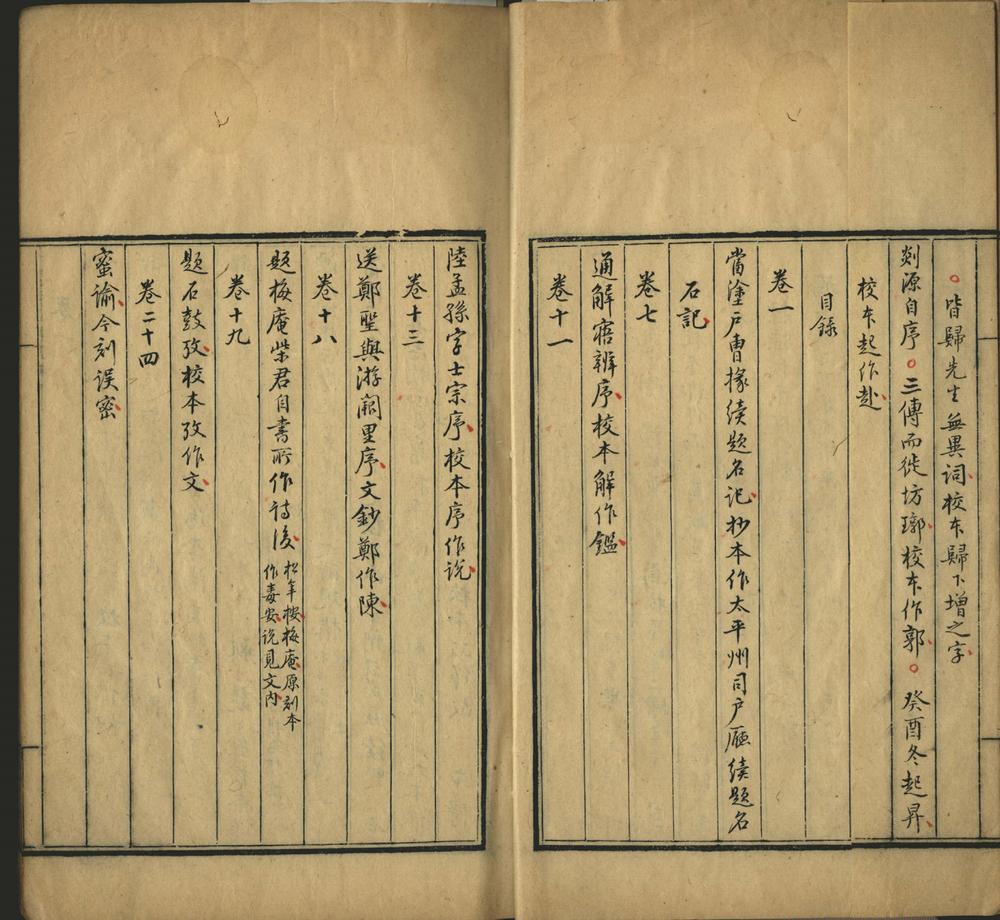 ○皆歸先生無異詞校本歸下增之字
剡源自序○三傳而徙坊瑯校本作郭○癸酉冬起昇
校本起作赴
目錄
卷一
當塗戶曹掾續題名記抄本作太平州司戶廳續題名
石記
卷七
通解寤辨序校本解作鑑
卷十一
陸孟孫字士宗序校本序作説
卷十三
送鄭聖與游闕里序文鈔鄭作陳
卷十八
題梅庵柴君自書所作詩後松年按梅庵原刻本
作毒安説見文內
卷十九
題石鼓攷校本攷作文
卷二十四
蜜喻今刻误密